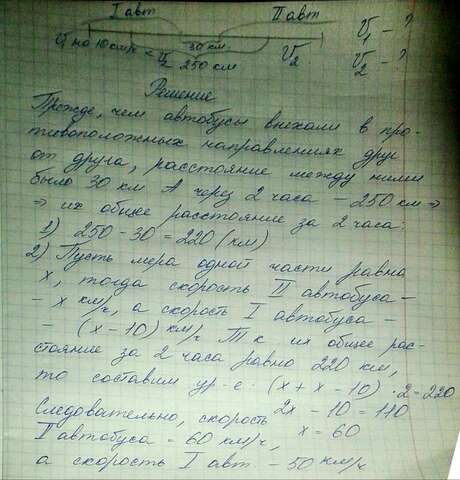 I авт II авт
V₁ на 10 км/ч < V₂ 30 км V₂ V₁ - ?
250 км V₂ - ?
Решение
Прежде, чем автобусы выехали в про-
тивоположных направлениях друг
от друга, расстояние между ними
было 30 км. А через 2 часа - 250 км ⇒
⇒ их общее расстояние за 2 часа:
1) 250 - 30 = 220 (км)
2) Пусть мера одной части равна
x, тогда скорость II автобуса -
- x км/ч, а скорость I автобуса -
- (x - 10) км/ч. Т к их общее рас-
стояние за 2 часа равно 220 км,
то составим ур-е: (x + x - 10) · 2 = 220
2x - 10 = 110
Следовательно, скорость x = 60
II автобуса = 60 км/ч,
а скорость I авт. - 50 км/ч